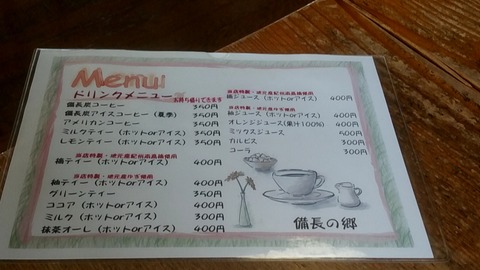 Menu
ドリンクメニュー
お持ち帰りできます
備長炭コーヒー 350円
備長炭アイスコーヒー（夏季） 350円
アメリカンコーヒー 350円
ミルクティー（ホットorアイス） 350円
レモンティー（ホットorアイス） 350円
梅ティー（ホットorアイス） 400円
柚ティー（ホットorアイス） 400円
グリーンティー 350円
ココア（ホットorアイス） 400円
ミルク（ホットorアイス） 300円
抹茶オーレ（ホットorアイス） 400円
梅ジュース（ホットorアイス） 400円
柚ジュース（ホットorアイス） 400円
オレンジジュース(果汁100%) 400円
ミックスジュース 500円
カルピス 300円
コーラ 300円
備長の郷